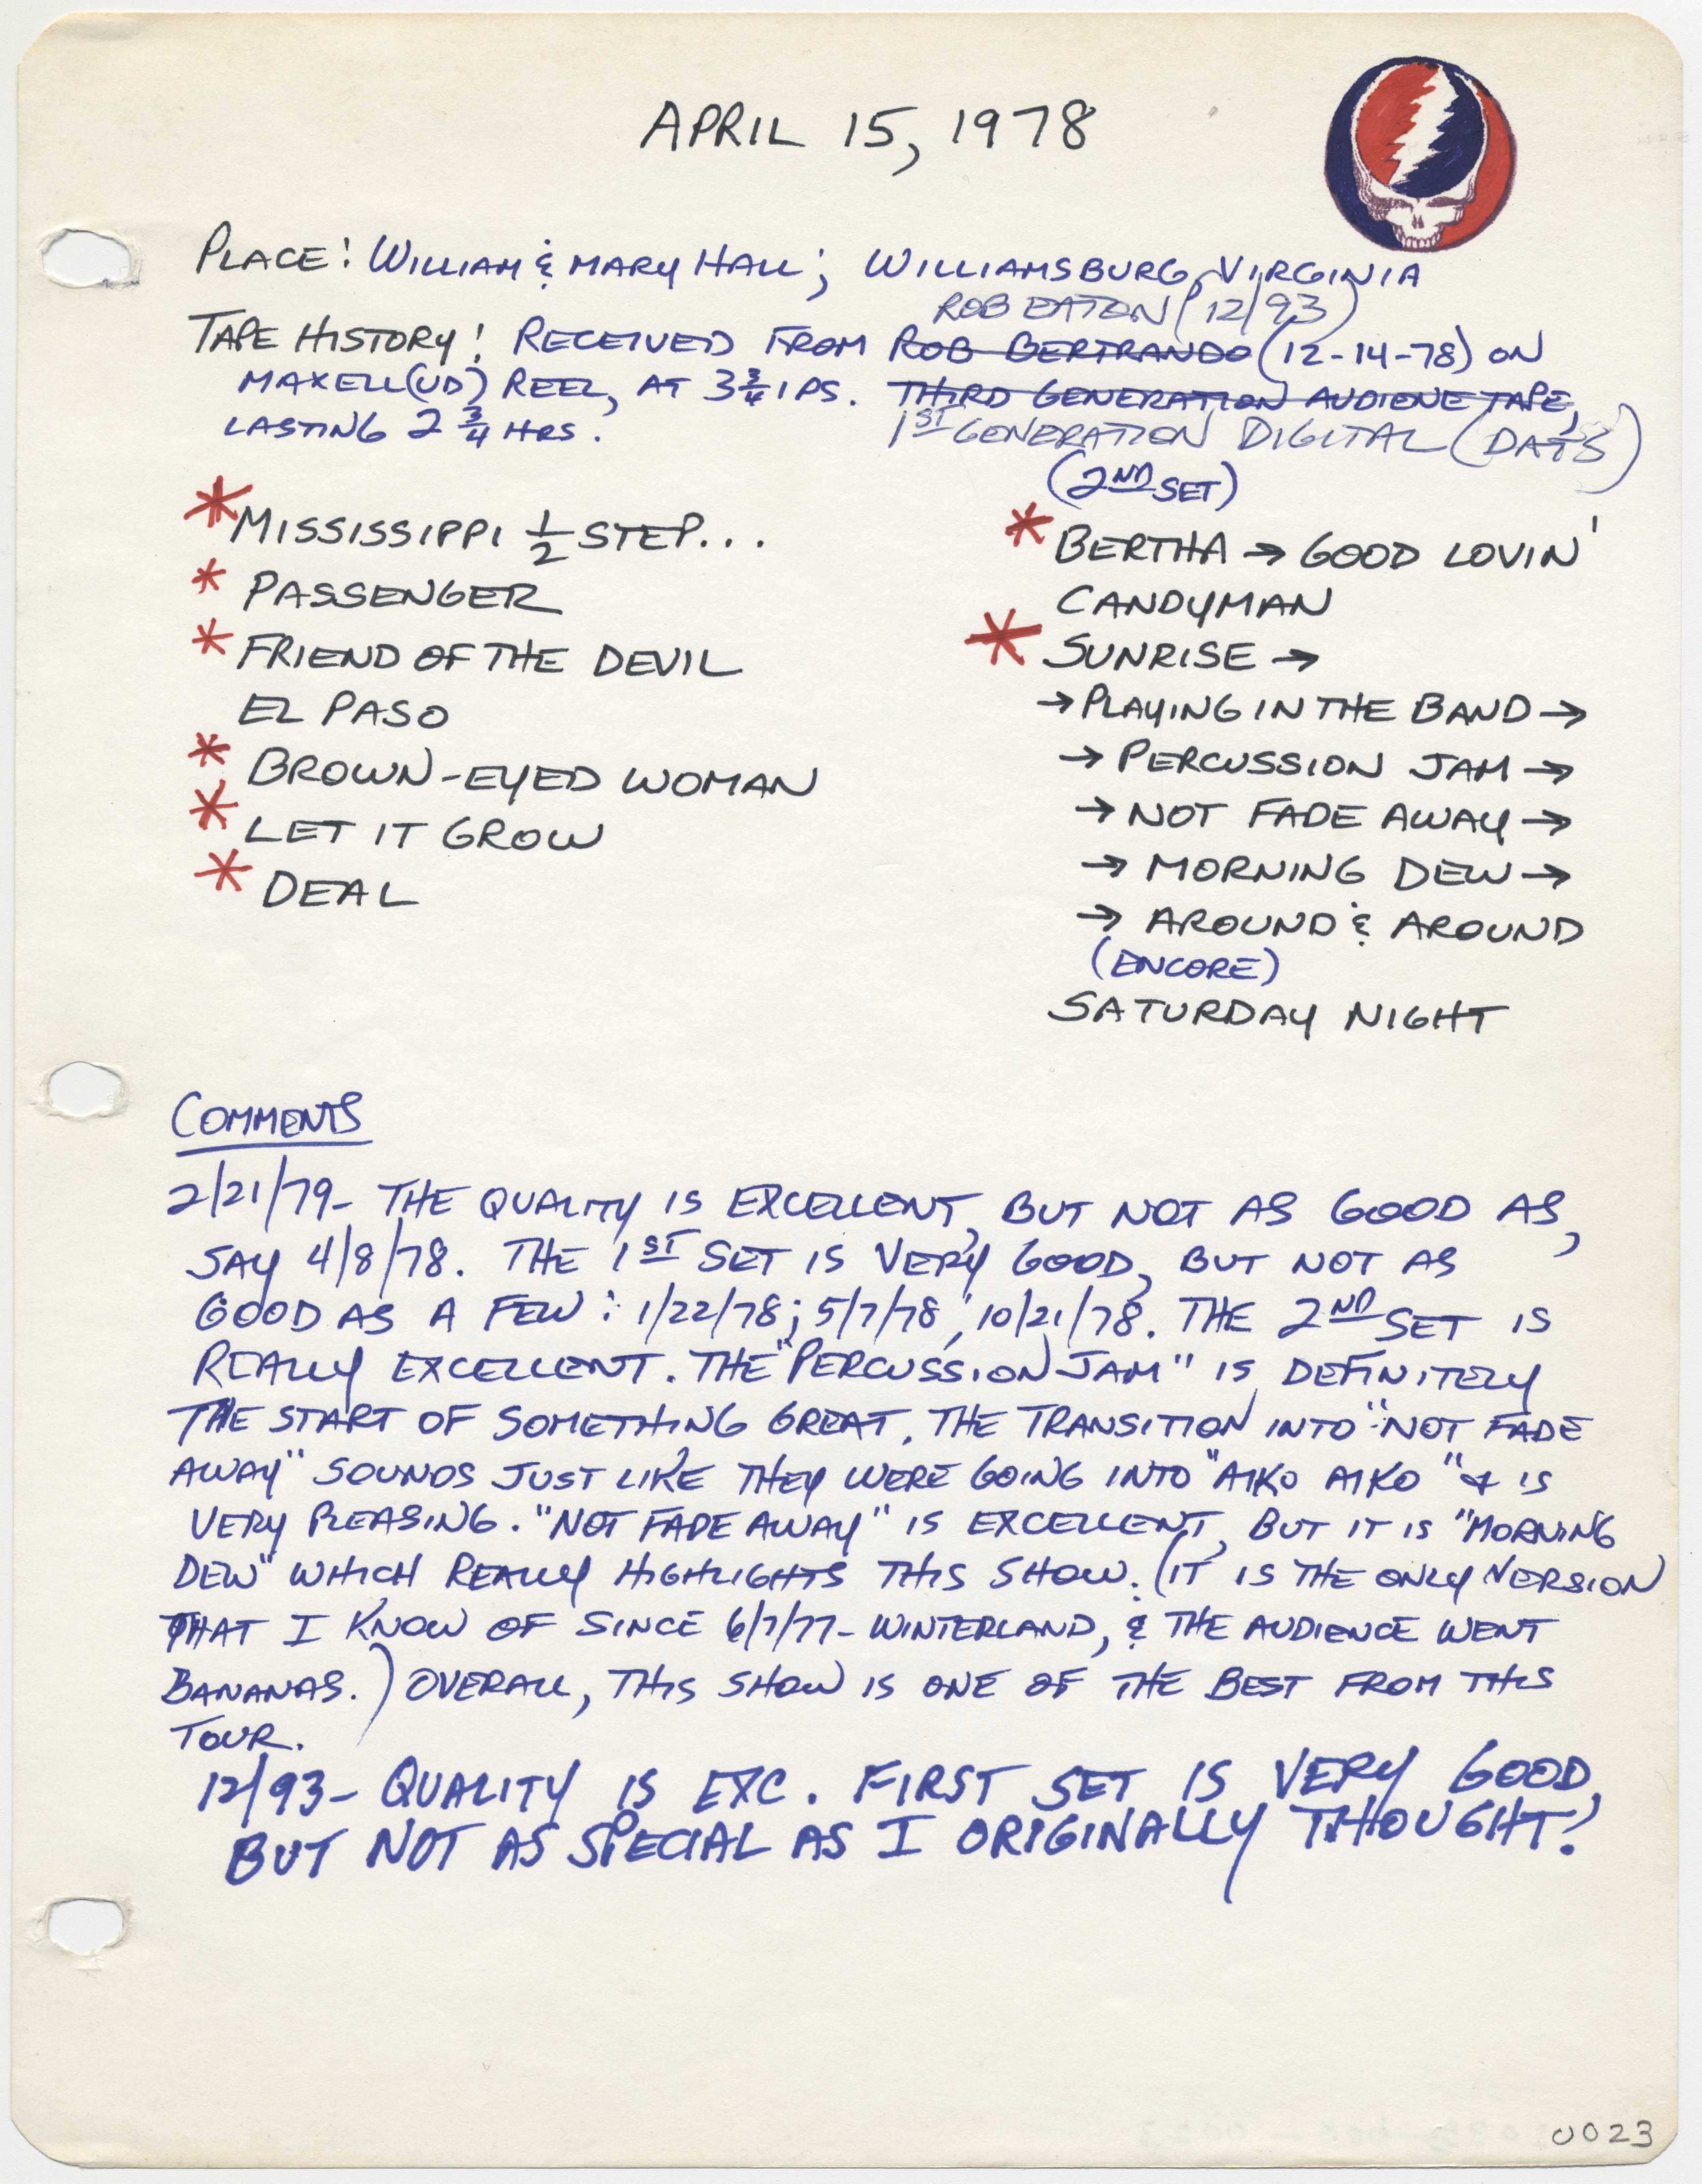 APRIL 15, 1978
PLACE: WILLIAM & MARY HALL; WILLIAMSBURG, VIRGINIA
ROB EATON (12/93)
TAPE HISTORY: RECEIVED FROM ROB BERTRANDO (12-14-78) ON
MAXELL (UD) REEL, AT 3 3/4 IPS. THIRD GENERATION AUDIENE TAPE,
LASTING 2 3/4 HRS. 1ST GENERATION DIGITAL (DATS)
* MISSISSIPPI 1/2 STEP...
* PASSENGER
* FRIEND OF THE DEVIL
EL PASO
* BROWN-EYED WOMAN
* LET IT GROW
* DEAL
(2ND SET)
* BERTHA → GOOD LOVIN'
CANDYMAN
* SUNRISE →
→ PLAYING IN THE BAND →
→ PERCUSSION JAM →
→ NOT FADE AWAY →
→ MORNING DEW →
→ AROUND & AROUND
(ENCORE)
SATURDAY NIGHT
COMMENTS
2/21/79- THE QUALITY IS EXCELLENT, BUT NOT AS GOOD AS,
SAY 4/8/78. THE 1ST SET IS VERY GOOD, BUT NOT AS
GOOD AS A FEW: 1/22/78; 5/7/78; 10/21/78. THE 2ND SET IS
REALLY EXCELLENT. THE "PERCUSSION JAM" IS DEFINITELY
THE START OF SOMETHING GREAT. THE TRANSITION INTO "NOT FADE
AWAY" SOUNDS JUST LIKE THEY WERE GOING INTO "AIKO AIKO" & IS
VERY PLEASING. "NOT FADE AWAY" IS EXCELLENT, BUT IT IS "MORNING
DEW" WHICH REALLY HIGHLIGHTS THIS SHOW. (IT IS THE ONLY VERSION
THAT I KNOW OF SINCE 6/7/77- WINTERLAND, & THE AUDIENCE WENT
BANANAS.) OVERALL, THIS SHOW IS ONE OF THE BEST FROM THIS
TOUR.
12/93- QUALITY IS EXC. FIRST SET IS VERY GOOD,
BUT NOT AS SPECIAL AS I ORIGINALLY THOUGHT!
0023